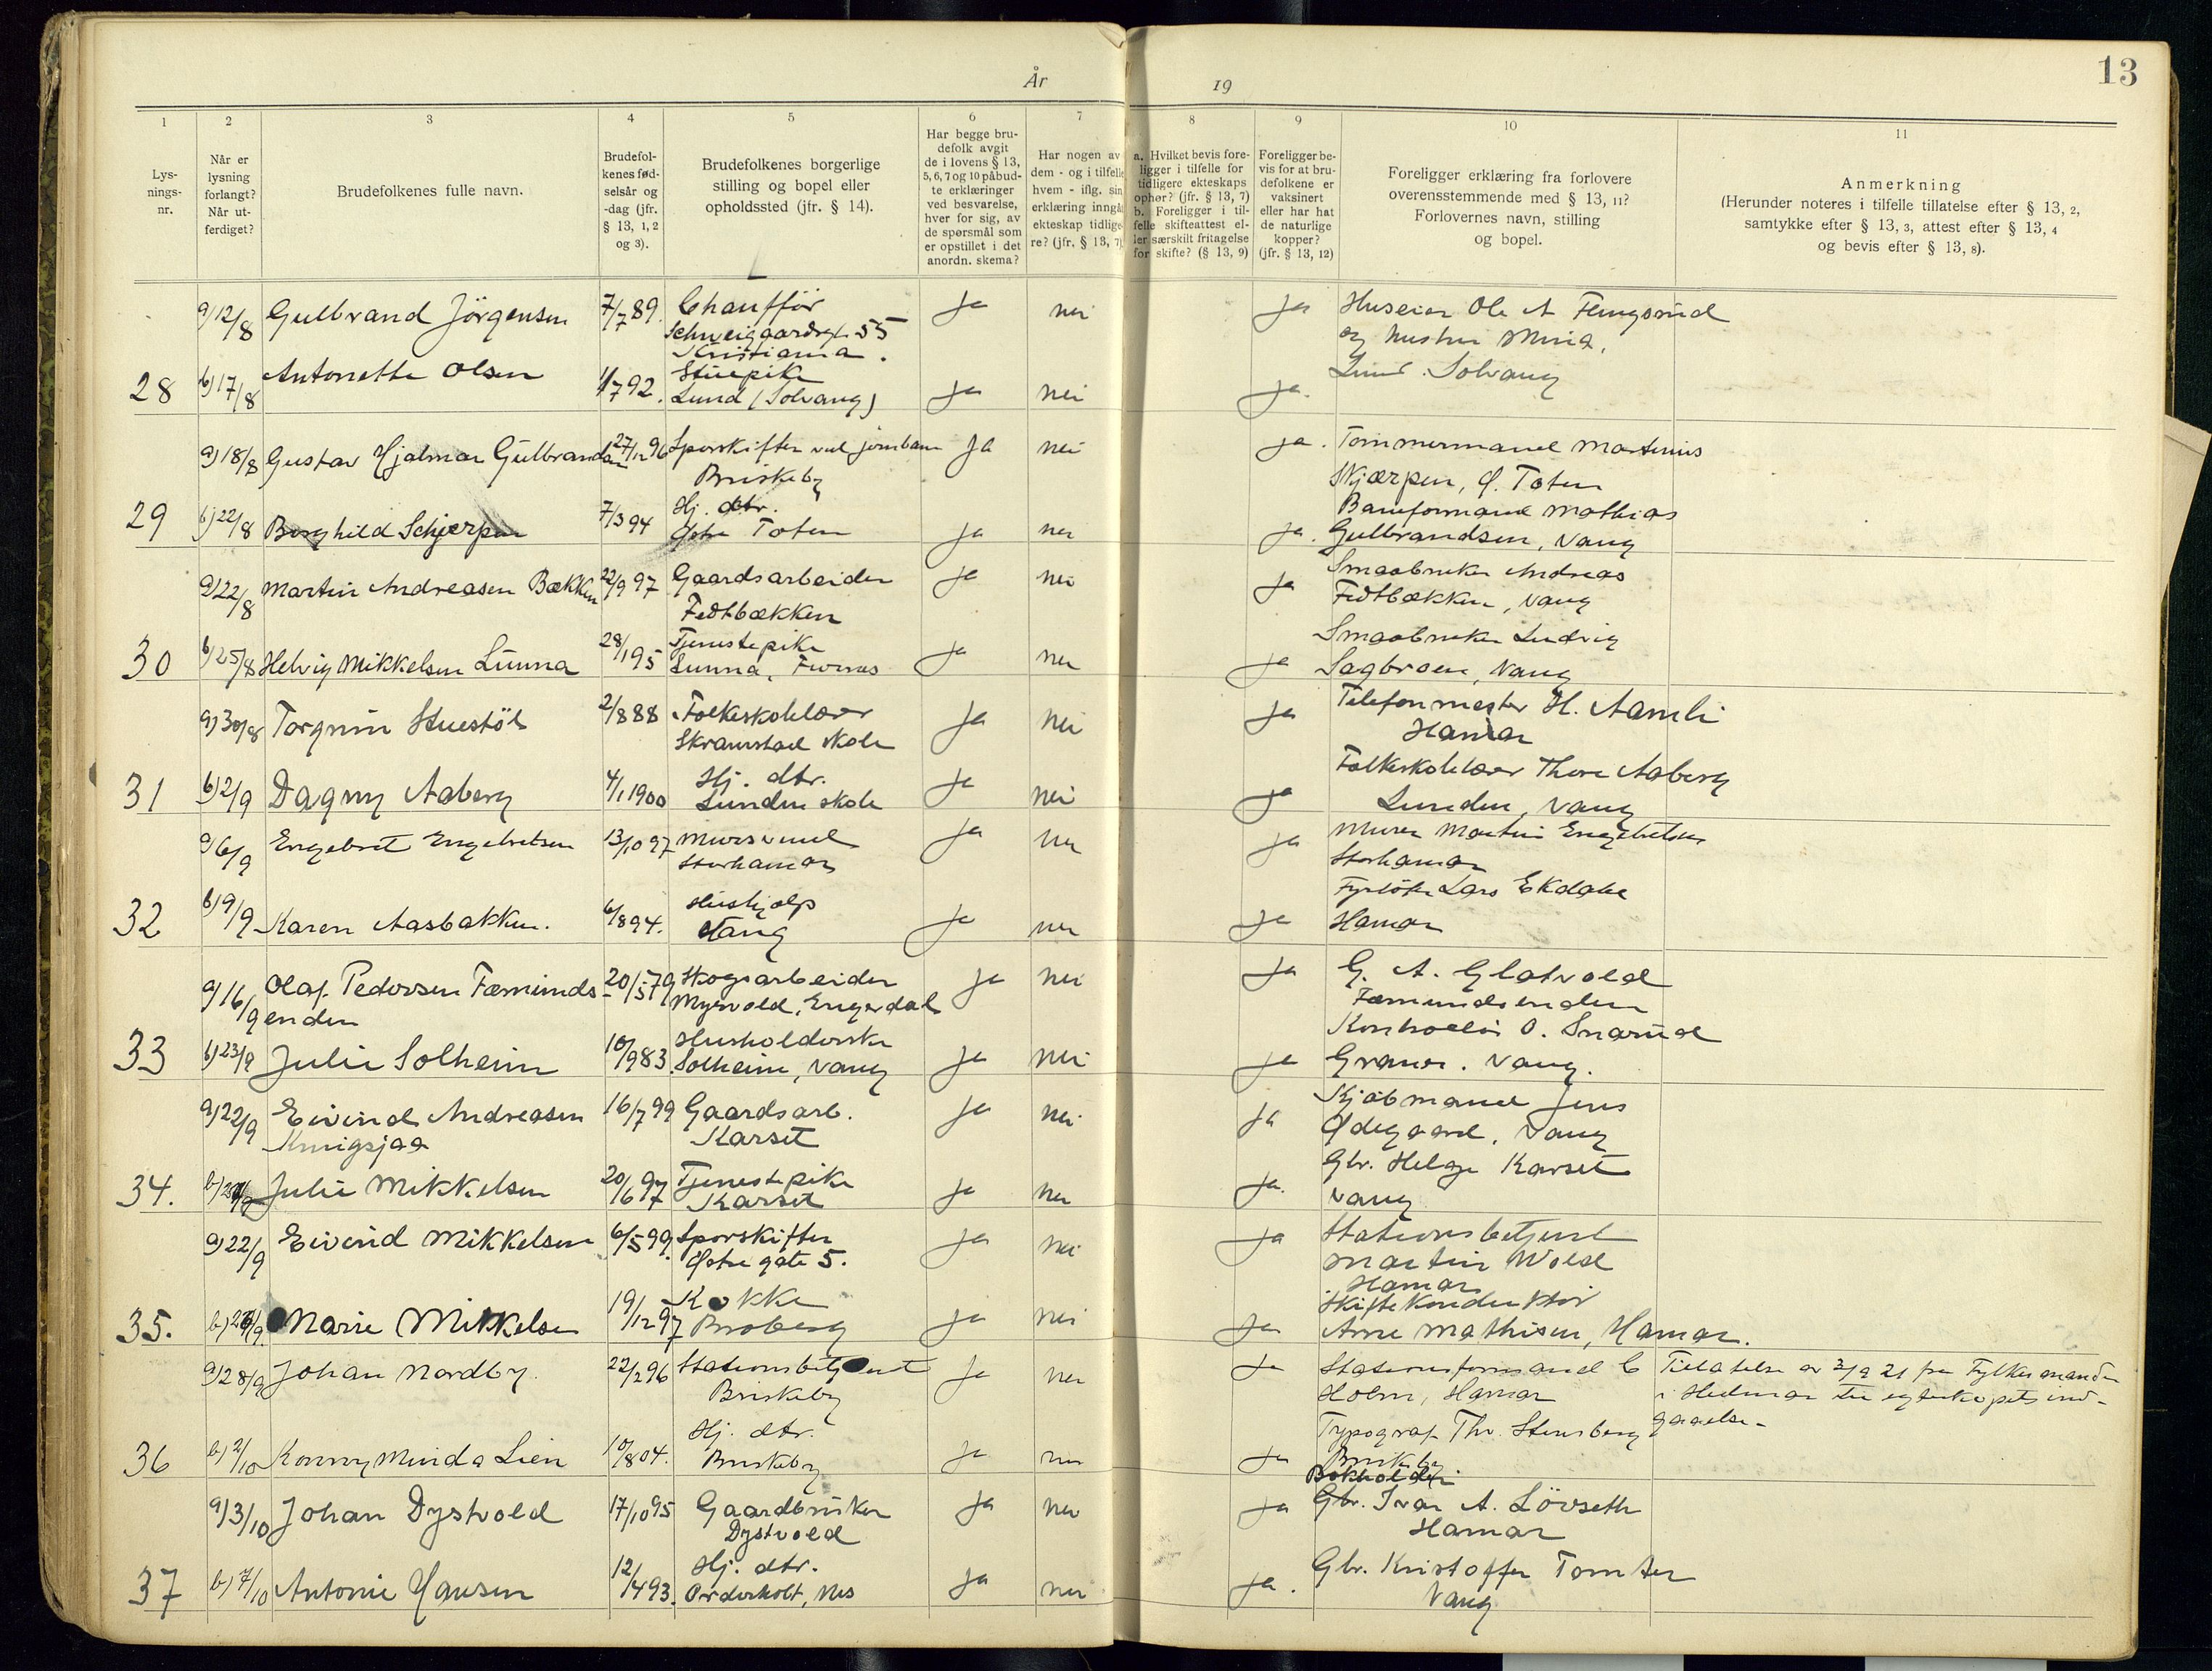 13
År
19
1
2
3
4
5
6
7
8
9
10
11
Lys-
nings-
nr.
Når er
lysning
forlangt?
Når ut-
ferdiget?
Brudefolkenes fulle navn.
Brudefol-
kenes fød-
selsår og
-dag (jfr.
§ 13, 1, 2
og 3).
Brudefolkenes borgerlige
stilling og bopel eller
opholdssted (jfr. § 14).
Har begge bru-
defolk avgit
de i lovens § 13,
5, 6, 7 og 10 påbud-
te erklæringer
ved besvarelse,
hver for sig, av
de spørsmål som
er opstillet i det
anordn. skema?
Har nogen av
dem - og i tilfelle
hvem - iflg. sin
erklæring inngå
ekteskap tidlige-
re? (jfr. § 13, 7)
a. Hvilket bevis fore-
ligger i tilfelle for
tidligere ekteskaps
ophør? (jfr. § 13, 7)
b. Foreligger i til-
felle skifteattest el-
ler særskilt fritagelse
for skifte? (§ 13, 9)
Foreligger be-
vis for at bru-
defolkene er
vaksinert
eller har hat
de naturlige
kopper?
(jfr. § 13, 12)
Foreligger erklæring fra forlovere
overensstemmende med § 13, 11?
Forlovernes navn, stilling
og bopel.
Anmerkning
(Herunder noteres i tilfelle tillatelse efter § 13, 2,
samtykke efter § 13, 3, attest efter § 13, 4
og bevis efter § 13, 8).
a) 12/8 Gulbrand Jörgensen 7/7 89. Chafför ja nei ja Huseier Ole A Flengsrud
Schweigaardsgt 55
Kristiania.
og hustru Mina,
28 b) 17/8 Antonette Olsen 1/7 92. Stuepike
Lund (Solvang) ja nei ja. Lund. Solvang
a) 18/8 Gustav Hjalmar Gulbrandsen 27/12 96 Sporskifter ved jernbane ja nei ja. Tømmermand Martinius
Briskeby
Skjærpen, Ø. Toten
29 b) 22/8 Borghild Schjerpen 7/3 94 Hj. dtr.
Østre Toten ja nei ja. Baneformand Mathias
Gulbrandsen, Vang
a) 22/8 Martin Andreasen Bækken 22/9 97 Gaardsarbeider ja nei ja Smaabruker Andreas
Fedtbækken
Fedtbækken, Vang
30 b) 25/8 Helvig Mikkelsen Lunna 28/1 95 Tjenestepike
Lunna, Furnes ja nei ja Smaabruker Ludvig
Sagbroen, Vang
a) 30/8 Torgrim Stuestöl 2/8 88 Folkeskolelærer ja nei ja Telefonmester H. Aamli
Skramstad skole
Hamar
31 b) 2/9 Dagny Aaberg 4/1 1900 Hj. dtr.
Lunden skole ja nei ja Folkeskolelærer Thore Aaberg
Lunden, Vang
a) 6/9 Engebret Engebretsen 13/10 97 Murersvend ja nei ja Murer Martin Engebretsen
Storhamar
Storhamar
32 b) 9/9 Karen Aasbakken. 6/8 94. Hushjælp
Vang ja nei ja Fyrböter Lars Ekdahl
Hamar
a) 16/9 Olaf Pedersen Fæmunds-
enden 20/5 79 Skogsarbeider
Myrvold, Engerdal ja nei ja G. A. Glatvold
Fæmundsenden
33 b) 23/9 Julie Solheim 10/9 83. Husholderske
Solheim, Vang ja nei ja Kontrollör O. Snarud
Granli. Vang.
a) 22/9 Eivind Andreasen 16/7 99 Gaardsarb.
Karset ja nei ja Kjöbmand Jens
Ødegaard, Vang
34. b) Julie Mikkelsen 20/6 97 Tjenestepike
Karset ja nei ja. Gbr. Helge Karset
Vang
a) 22/9 Eivind Mikkelsen 6/5 99. Sporskifter
Østre gate 5. ja nei ja Stationsbetjent
Martin Wold
Hamar
35. b) Marie Mikkelsen 19/12 97 Kokke
Broberg ja nei ja Skiftekonduktör
Arne Mathisen, Hamar.
a) 28/9 Johan Nordby. 22/2 96 Stationsbetjent
Briskeby ja nei ja Stationsformand C
Holm, Hamar
Tillatelse av 3/9 21 fra Fylkesmanden
i Hedmar til egteskapets ind-
gaaelse.
36 b) 2/10 Konny Minda Lien 10/8 04. Hj. dtr.
Briskeby ja nei ja Typograf Thr. Stensberg
Briskeby
a) 3/10 Johan Dystvold 17/10 95 Gaardbruker
Dystvold ja nei ja Bokholder
Gbr. Ivar A. Lövseth
Hamar
37 b) 7/10 Antonie Hansen 12/4 93. Hj. dtr.
Orderholt, Nes ja nei ja. Gbr. Kristoffer Tomter
Vang